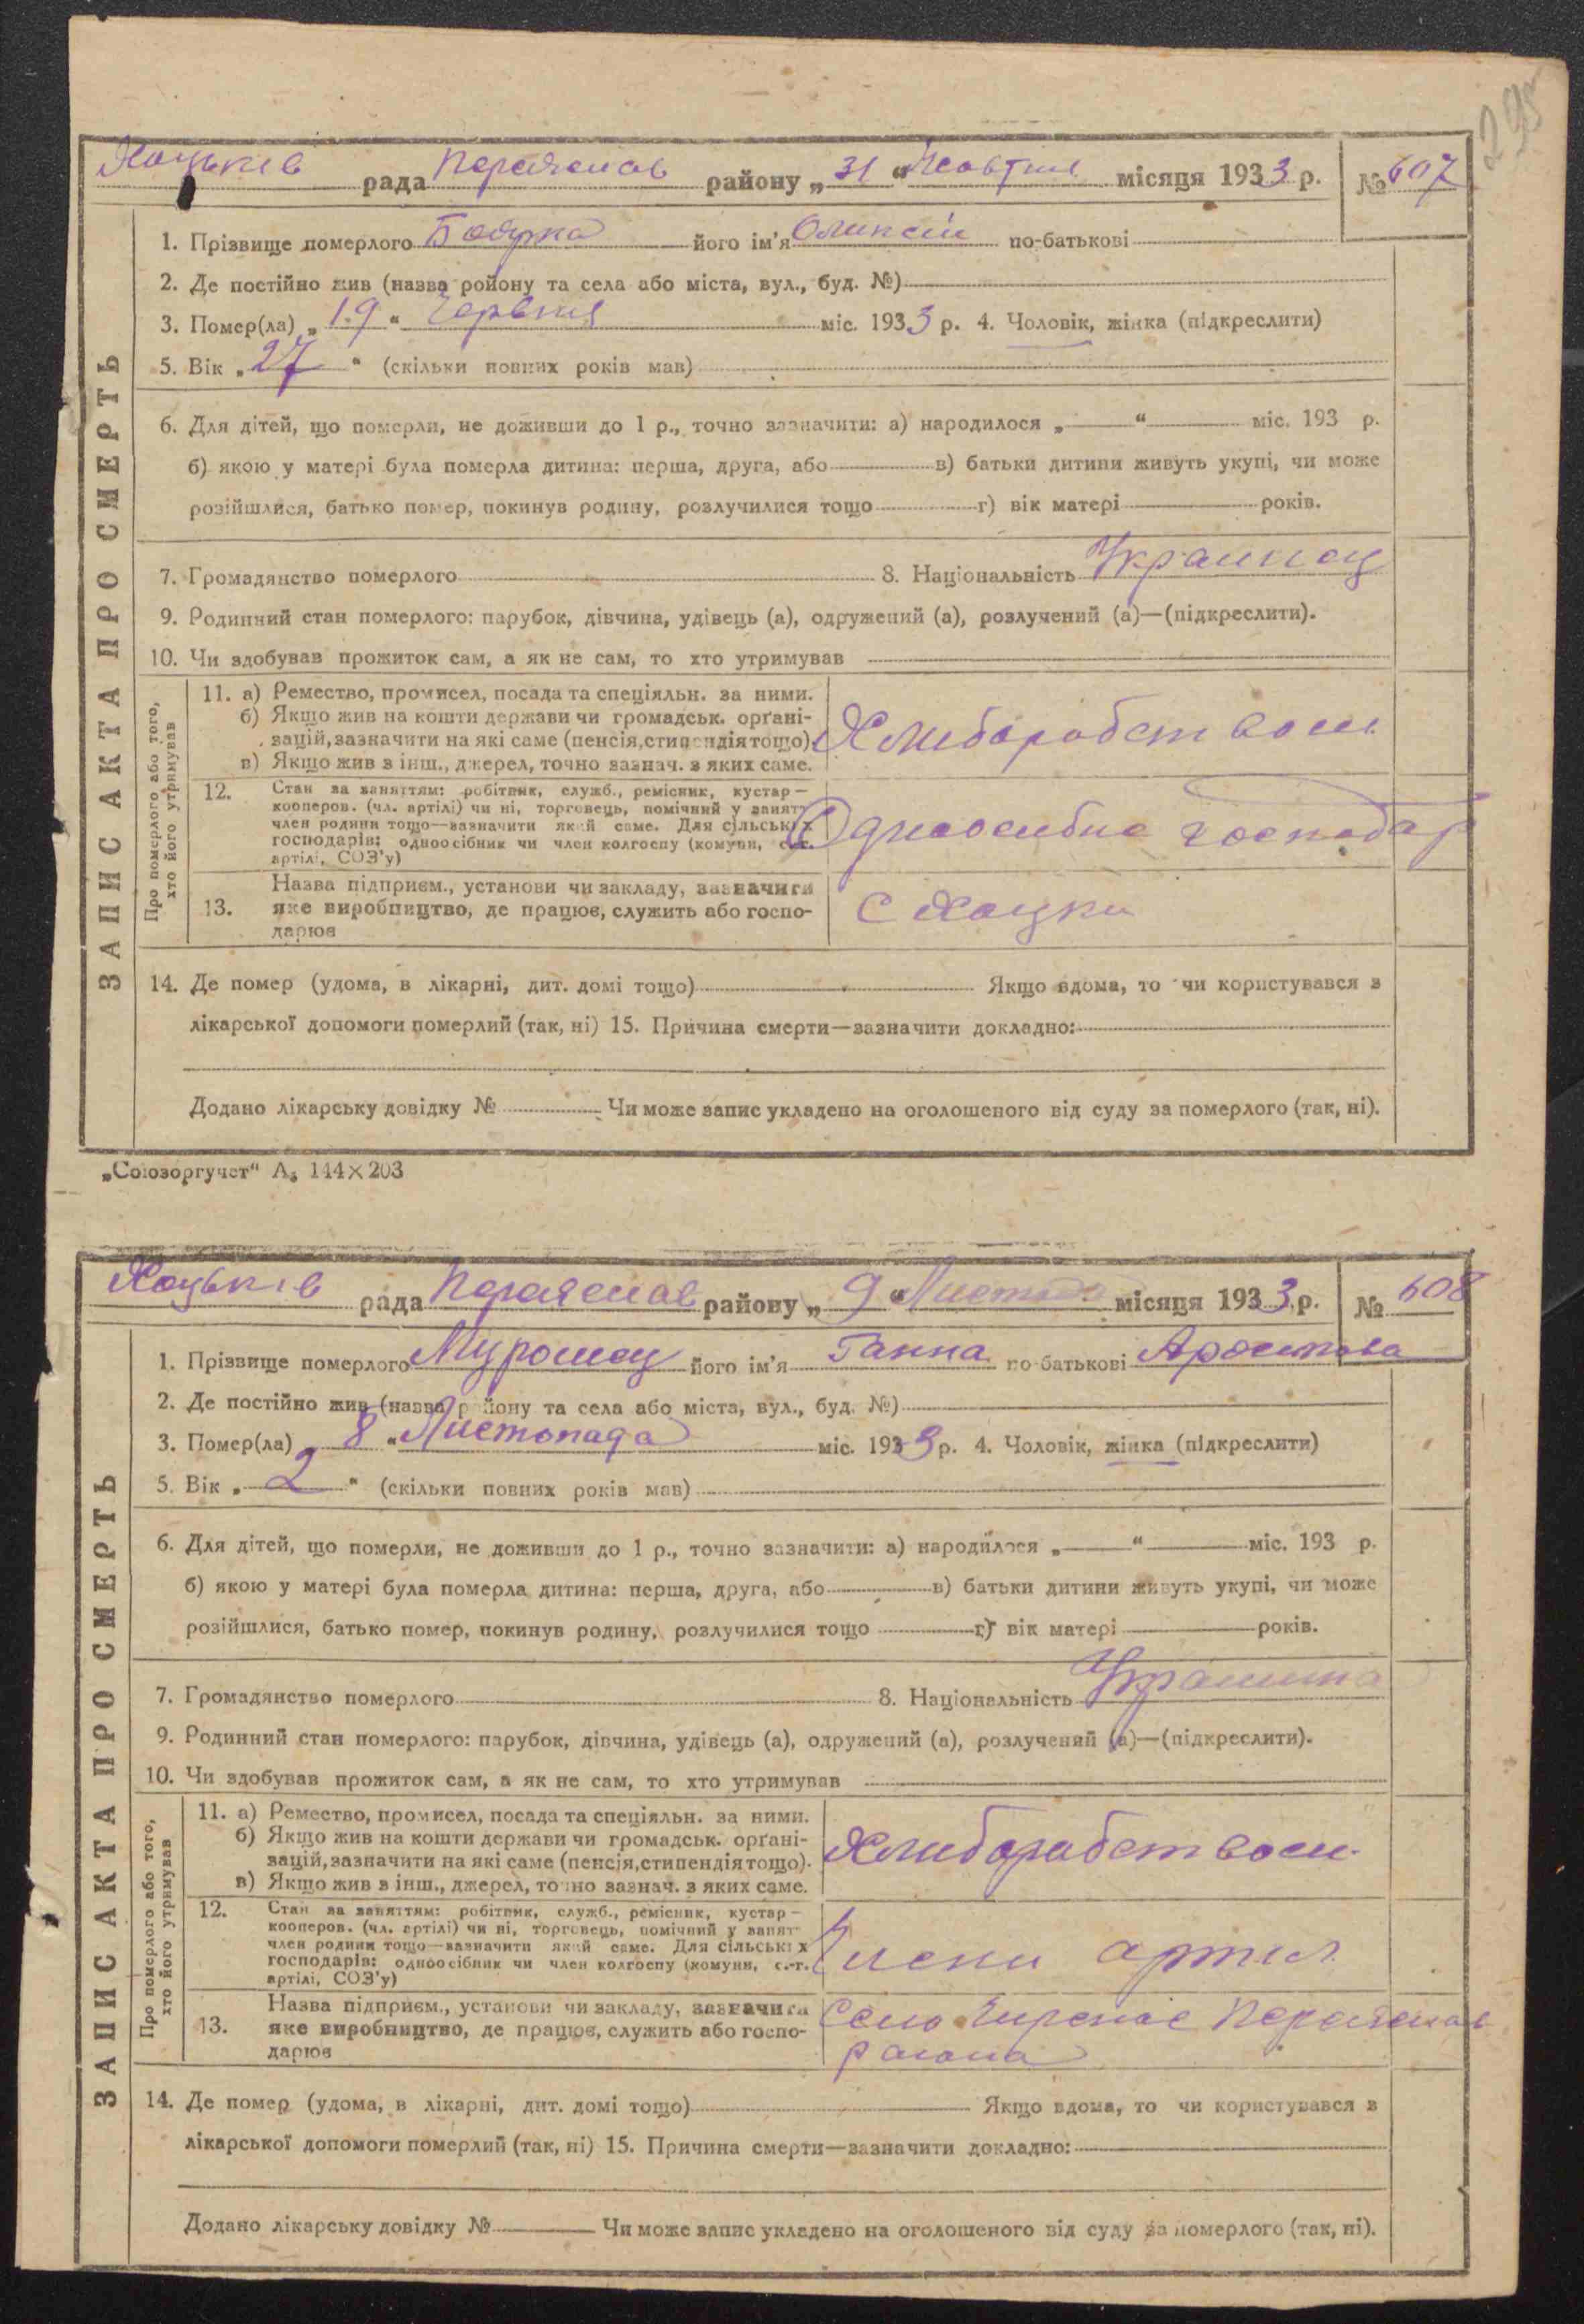 295
Хоцьків рада Переяслав району „31“ Жовтня місяця 1933 р. № 607
ЗАПИС АКТА ПРО СМЕРТЬ
1. Прізвище померлого Боярка його ім'я Оликсій по-батькові
2. Де постійно жив (назва ройону та села або міста, вул., буд. №)
3. Помер(ла) „19“ Червня міс. 1933 р. 4. Чоловік, жінка (підкреслити)
5. Вік „27“ (скільки повних років мав)
6. Для дітей, що померли, не доживши до 1 р., точно зазначити: а) народилося „ “ міс. 193 р.
б) якою у матері була померла дитина: перша, друга, або в) батьки дитини живуть укупі, чи може
розійшлися, батько помер, покинув родину, розлучилися тощо г) вік матері років.
7. Громадянство померлого 8. Національність Украинец
9. Родинний стан померлого: парубок, дівчина, удівець (а), одружений (а), розлучений (а)—(підкреслити).
10. Чи здобував прожиток сам, а як не сам, то хто утримував
Про померлого або того, хто його утримував
11. а) Ремество, промисел, посада та спеціяльн. за ними.
б) Якщо жив на кошти держави чи громадськ. орґані-
зацій, зазначити на які саме (пенсія, стипендія тощо).
в) Якщо жив з інш., джерел, точно зазнач. з яких саме.
Хлиборобством
12. Стан за заняттям: робітник, служб., ремісник, кустар—
кооперов. (чл. артілі) чи ні, торговець, помічний у занят
член родини тощо—зазначити який саме. Для сільських
господарів: одноосібник чи член колгоспу (комуни, с.-г.
артілі, СОЗ'у)
Одноосибне господар
13. Назва підприєм., установи чи закладу, зазначити
яке виробництво, де працює, служить або госпо-
дарює
С Хоцки
14. Де помер (удома, в лікарні, дит. домі тощо) Якщо вдома, то чи користувався з
лікарської допомоги померлий (так, ні) 15. Причина смерти—зазначити докладно:
Додано лікарську довідку № Чи може запис укладено на оголошеного від суду за померлого (так, ні).
„Союзоргучет“ А₅ 144×203
Хоцьків рада Переяслав району „9“ Листопада місяця 1933 р. № 608
ЗАПИС АКТА ПРО СМЕРТЬ
1. Прізвище померлого його ім'я Ганна по-батькові
2. Де постійно жив (назва району та села або міста, вул., буд. №)
3. Помер(ла) „8“ Листопада міс. 1933 р. 4. Чоловік, жінка (підкреслити)
5. Вік „2“ (скільки повних років мав)
6. Для дітей, що померли, не доживши до 1 р., точно зазначити: а) народилося „ “ міс. 193 р.
б) якою у матері була померла дитина: перша, друга, або в) батьки дитини живуть укупі, чи може
розійшлися, батько помер, покинув родину, розлучилися тощо г) вік матері років.
7. Громадянство померлого 8. Національність
9. Родинний стан померлого: парубок, дівчина, удівець (а), одружений (а), розлучений (а)—(підкреслити).
10. Чи здобував прожиток сам, а як не сам, то хто утримував
Про померлого або того, хто його утримував
11. а) Ремество, промисел, посада та спеціяльн. за ними.
б) Якщо жив на кошти держави чи громадськ. орґані-
зацій, зазначити на які саме (пенсія, стипендія тощо).
в) Якщо жив з інш., джерел, точно зазнач. з яких саме.
Хлиборабством
12. Стан за заняттям: робітник, служб., ремісник, кустар—
кооперов. (чл. артілі) чи ні, торговець, помічний у занят
член родини тощо—зазначити який саме. Для сільських
господарів: одноосібник чи член колгоспу (комуни, с.-г.
артілі, СОЗ'у)
Члени артил
13. Назва підприєм., установи чи закладу, зазначити
яке виробництво, де працює, служить або госпо-
дарює
Село Переяслав
района
14. Де помер (удома, в лікарні, дит. домі тощо) Якщо вдома, то чи користувався в
лікарської допомоги померлий (так, ні) 15. Причина смерти—зазначити докладно:
Додано лікарську довідку № Чи може запис укладено на оголошеного від суду за померлого (так, ні).